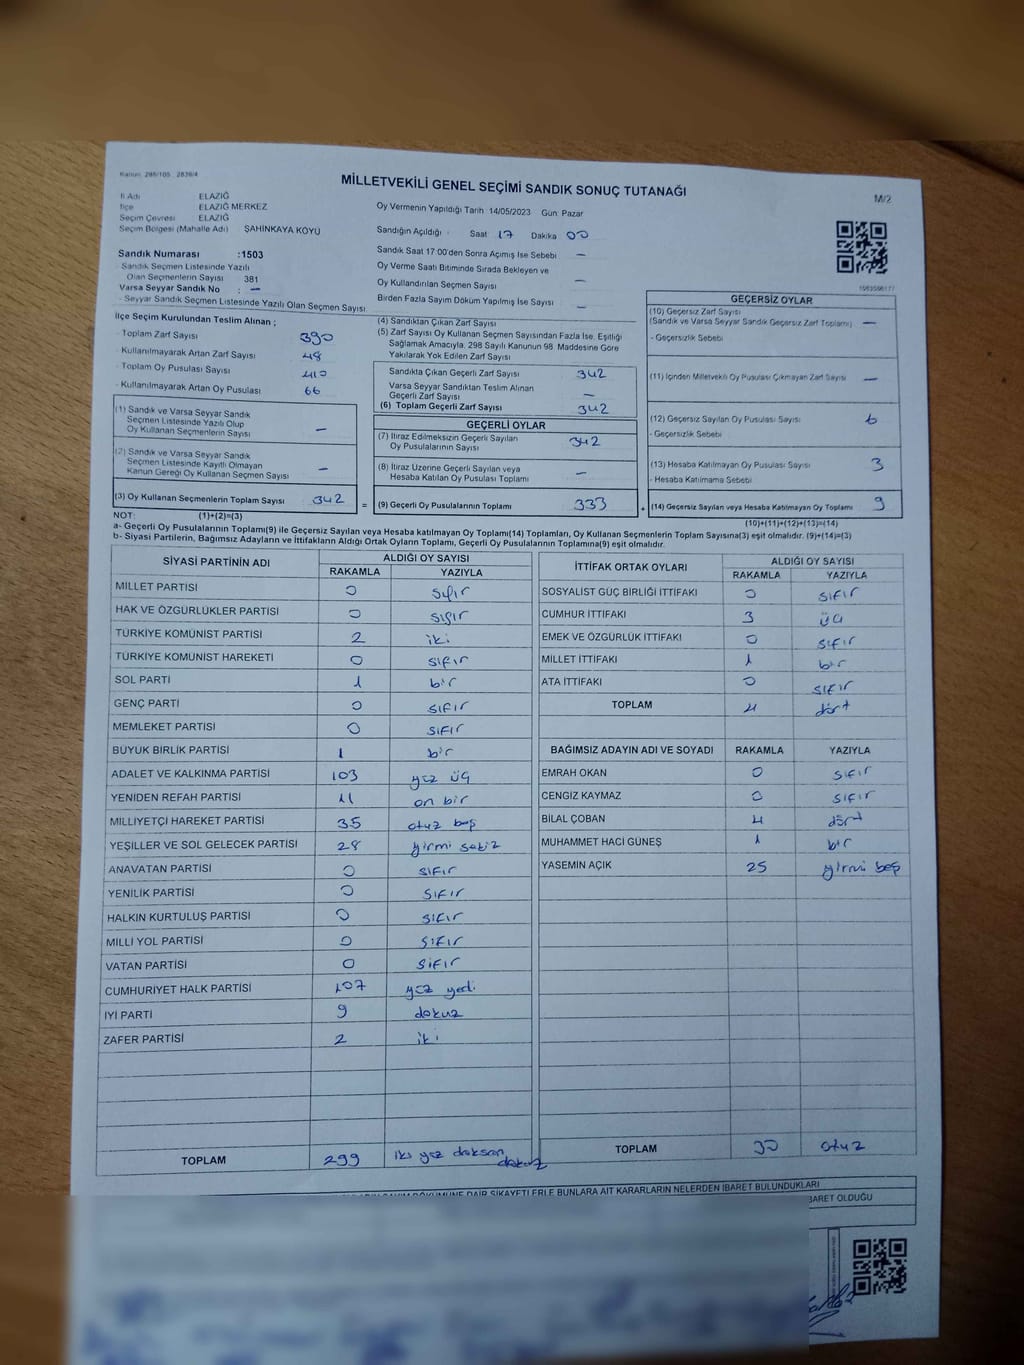 Kanun: 298/105 2839/4
MİLLETVEKİLİ GENEL SEÇİMİ SANDIK SONUÇ TUTANAĞI
M/2
İl Adı ELAZIĞ
İlçe ELAZIĞ MERKEZ
Seçim Çevresi ELAZIĞ
Seçim Bölgesi (Mahalle Adı) ŞAHİNKAYA KÖYÜ
Sandık Numarası :1503
Sandık Seçmen Listesinde Yazılı
Olan Seçmenlerin Sayısı 381
Varsa Seyyar Sandık No : —
Seyyar Sandık Seçmen Listesinde Yazılı Olan Seçmen Sayısı:
Oy Vermenin Yapıldığı Tarih 14/05/2023 Gün: Pazar
Sandığın Açıldığı Saat 17 Dakika 00
Sandık Saat 17.00'den Sonra Açımış İse Sebebi —
Oy Verme Saati Bitiminde Sırada Bekleyen ve
Oy Kullandırılan Seçmen Sayısı —
Birden Fazla Sayım Döküm Yapılmış İse Sayısı —
İlçe Seçim Kurulundan Teslim Alınan ;
Toplam Zarf Sayısı 390
Kullanılmayarak Artan Zarf Sayısı 48
Toplam Oy Pusulası Sayısı 410
Kullanılmayarak Artan Oy Pusulası 66
(1) Sandık ve Varsa Seyyar Sandık
Seçmen Listesinde Yazılı Olup
Oy Kullanan Seçmenlerin Sayısı —
(2) Sandık ve Varsa Seyyar Sandık
Seçmen Listesinde Kayıtlı Olmayan
Kanun Gereği Oy Kullanan Seçmen Sayısı —
(3) Oy Kullanan Seçmenlerin Toplam Sayısı 342
(4) Sandıktan Çıkan Zarf Sayısı
(5) Zarf Sayısı Oy Kullanan Seçmen Sayısından Fazla İse, Eşitliği
Sağlamak Amacıyla, 298 Sayılı Kanunun 98. Maddesine Göre
Yakılarak Yok Edilen Zarf Sayısı
Sandıkta Çıkan Geçerli Zarf Sayısı 342
Varsa Seyyar Sandıktan Teslim Alınan
Geçerli Zarf Sayısı —
(6) Toplam Geçerli Zarf Sayısı 342
GEÇERLİ OYLAR
(7) İtiraz Edilmeksizin Geçerli Sayılan
Oy Pusulalarının Sayısı 342
(8) İtiraz Üzerine Geçerli Sayılan veya
Hesaba Katılan Oy Pusulası Toplamı —
= (9) Geçerli Oy Pusulalarının Toplamı 333
GEÇERSİZ OYLAR
(10) Geçersiz Zarf Sayısı
(Sandık ve Varsa Seyyar Sandık Geçersiz Zarf Toplamı) —
- Geçersizlik Sebebi
(11) İçinden Milletvekili Oy Pusulası Çıkmayan Zarf Sayısı —
(12) Geçersiz Sayılan Oy Pusulası Sayısı 6
- Geçersizlik Sebebi
(13) Hesaba Katılmayan Oy Pusulası Sayısı 3
- Hesaba Katılmama Sebebi
+ (14) Geçersiz Sayılan veya Hesaba Katılmayan Oy Toplamı 9
NOT: (1)+(2)=(3)
(10)+(11)+(12)+(13)=(14)
a- Geçerli Oy Pusulalarının Toplamı(9) ile Geçersiz Sayılan veya Hesaba katılmayan Oy Toplamı(14) Toplamları, Oy Kullanan Seçmenlerin Toplam Sayısına(3) eşit olmalıdır. (9)+(14)=(3)
b- Siyasi Partilerin, Bağımsız Adayların ve İttifakların Aldığı Ortak Oyların Toplamı, Geçerli Oy Pusulalarının Toplamına(9) eşit olmalıdır.
SİYASİ PARTİNİN ADI ALDIĞI OY SAYISI
RAKAMLA YAZIYLA
MİLLET PARTİSİ 0 sıfır
HAK VE ÖZGÜRLÜKLER PARTİSİ 0 sıfır
TÜRKİYE KOMÜNİST PARTİSİ 2 iki
TÜRKİYE KOMÜNİST HAREKETİ 0 sıfır
SOL PARTİ 1 bir
GENÇ PARTİ 0 sıfır
MEMLEKET PARTİSİ 0 sıfır
BÜYÜK BİRLİK PARTİSİ 1 bir
ADALET VE KALKINMA PARTİSİ 103 yüz üç
YENİDEN REFAH PARTİSİ 11 on bir
MİLLİYETÇİ HAREKET PARTİSİ 35 otuz beş
YEŞİLLER VE SOL GELECEK PARTİSİ 28 yirmi sekiz
ANAVATAN PARTİSİ 0 sıfır
YENİLİK PARTİSİ 0 sıfır
HALKIN KURTULUŞ PARTİSİ 0 sıfır
MİLLİ YOL PARTİSİ 0 sıfır
VATAN PARTİSİ 0 sıfır
CUMHURİYET HALK PARTİSİ 107 yüz yedi
İYİ PARTİ 9 dokuz
ZAFER PARTİSİ 2 iki
TOPLAM 299 iki yüz doksan dokuz
İTTİFAK ORTAK OYLARI ALDIĞI OY SAYISI
RAKAMLA YAZIYLA
SOSYALİST GÜÇ BİRLİĞİ İTTİFAKI 0 sıfır
CUMHUR İTTİFAKI 3 üç
EMEK VE ÖZGÜRLÜK İTTİFAKI 0 sıfır
MİLLET İTTİFAKI 1 bir
ATA İTTİFAKI 0 sıfır
TOPLAM 4 dört
BAĞIMSIZ ADAYIN ADI VE SOYADI RAKAMLA YAZIYLA
EMRAH OKAN 0 sıfır
CENGİZ KAYMAZ 0 sıfır
BİLAL ÇOBAN 4 dört
MUHAMMET HACİ GÜNEŞ 1 bir
YASEMİN AÇIK 25 yirmi beş
TOPLAM 30 otuz
DÖKÜMÜNE DAİR ŞİKAYETLERLE BUNLARA AİT KARARLARIN NELERDEN İBARET BULUNDUKLARI
BARET OLDUĞU